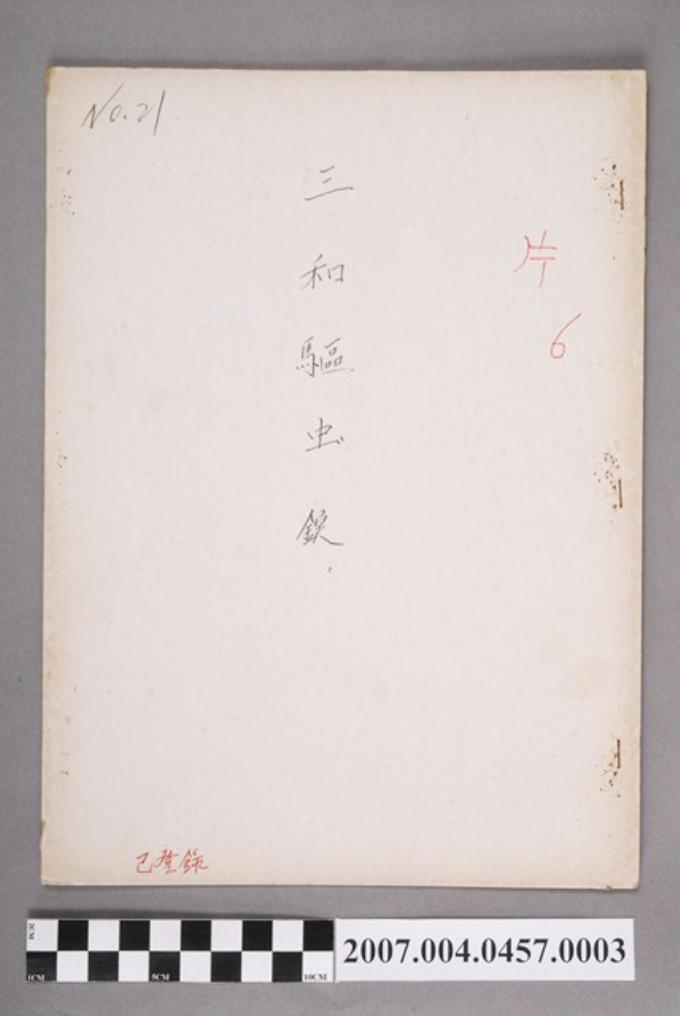 No.21
片
6
三和驅虫錠
已登錄
2CM
1CM
5CM
10CM
2007.004.0457.0003